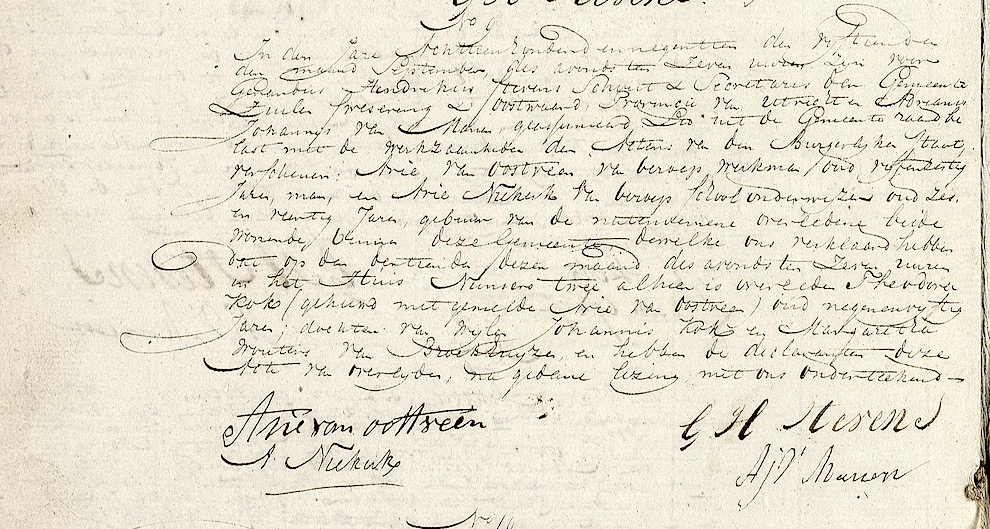 No 9
In den Jare Achttienhonderd ennegentien den vyftienden
der maand September, des avonds ten Zeven uuren Zyn voor
Gerardus Hendrikus Stevens Schout & Secretaris der Gemeente
Zuilen Swesereng & Oostwaard, Provincie van Utrecht en Adrianus
Johannes van Manen, geassumeerd Lid uit de Gemeente raad be
last met de werkzaamheden den Actens van den Burgerlyken Staat,
verschenen: Arie van Oostveen van beroep werkman oud vyfenzestig
Jaren, man, en Arie Niekerk van beroep Schoolonderwyzer oud Zes
en veertig Jaren, gebuur van de natenoemene overledene beide
wonende binnen deze Gemeente dewelke ons verklaard hebben
dat op den dertienden dezer maand des avonds ten Zeven uuren
in het Huis Numero twee alhier is overleden Theodora
Kok (gehuwd met gemelde Arie van Oostveen) oud negenenvyftig
Jaren; dochter van wylen Johannis Kok en Margaretha
Wouters van Broekhuyzen, en hebben de declaranten deze
Acte van overlyden, na gedane lezing met ons onderteekend
Arie van oostveen
G H Stevens
A Niekerk
A J V Manen
No 10